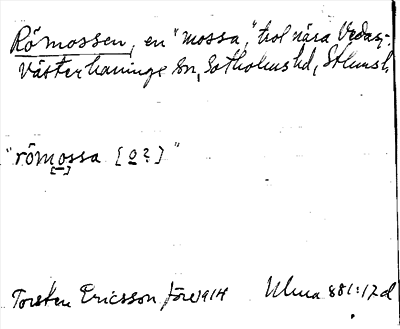 Römossen, en "mossa," trol nära Vedaz,
Västerhaninge sn, Sotholms hd, Sthms l.
"römossa [o?]"
Torsten Ericsson före 1914 Ulma 881:17 d